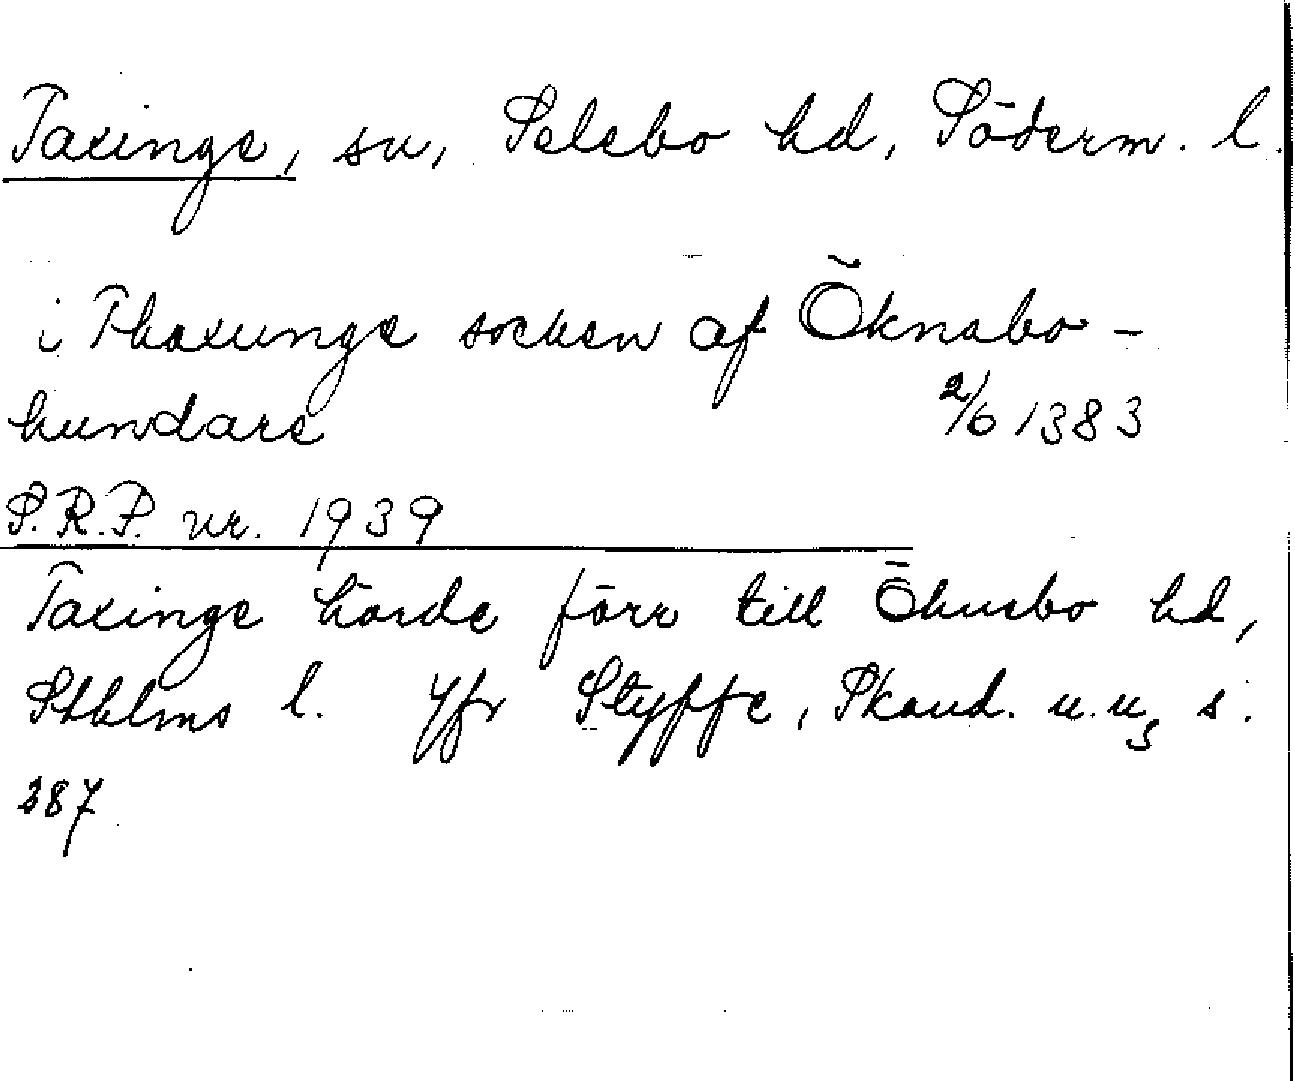 Taxinge, sn, Selebo hd, Söderm. l.
i Thaxunge socken af Öknabo-
hundare 2/6 1383
S.R.P. nr. 1939
Taxinge hörde förr till Öknebo hd,
Sthlms l. Jfr Styffe, Skand. u.u, s.
387